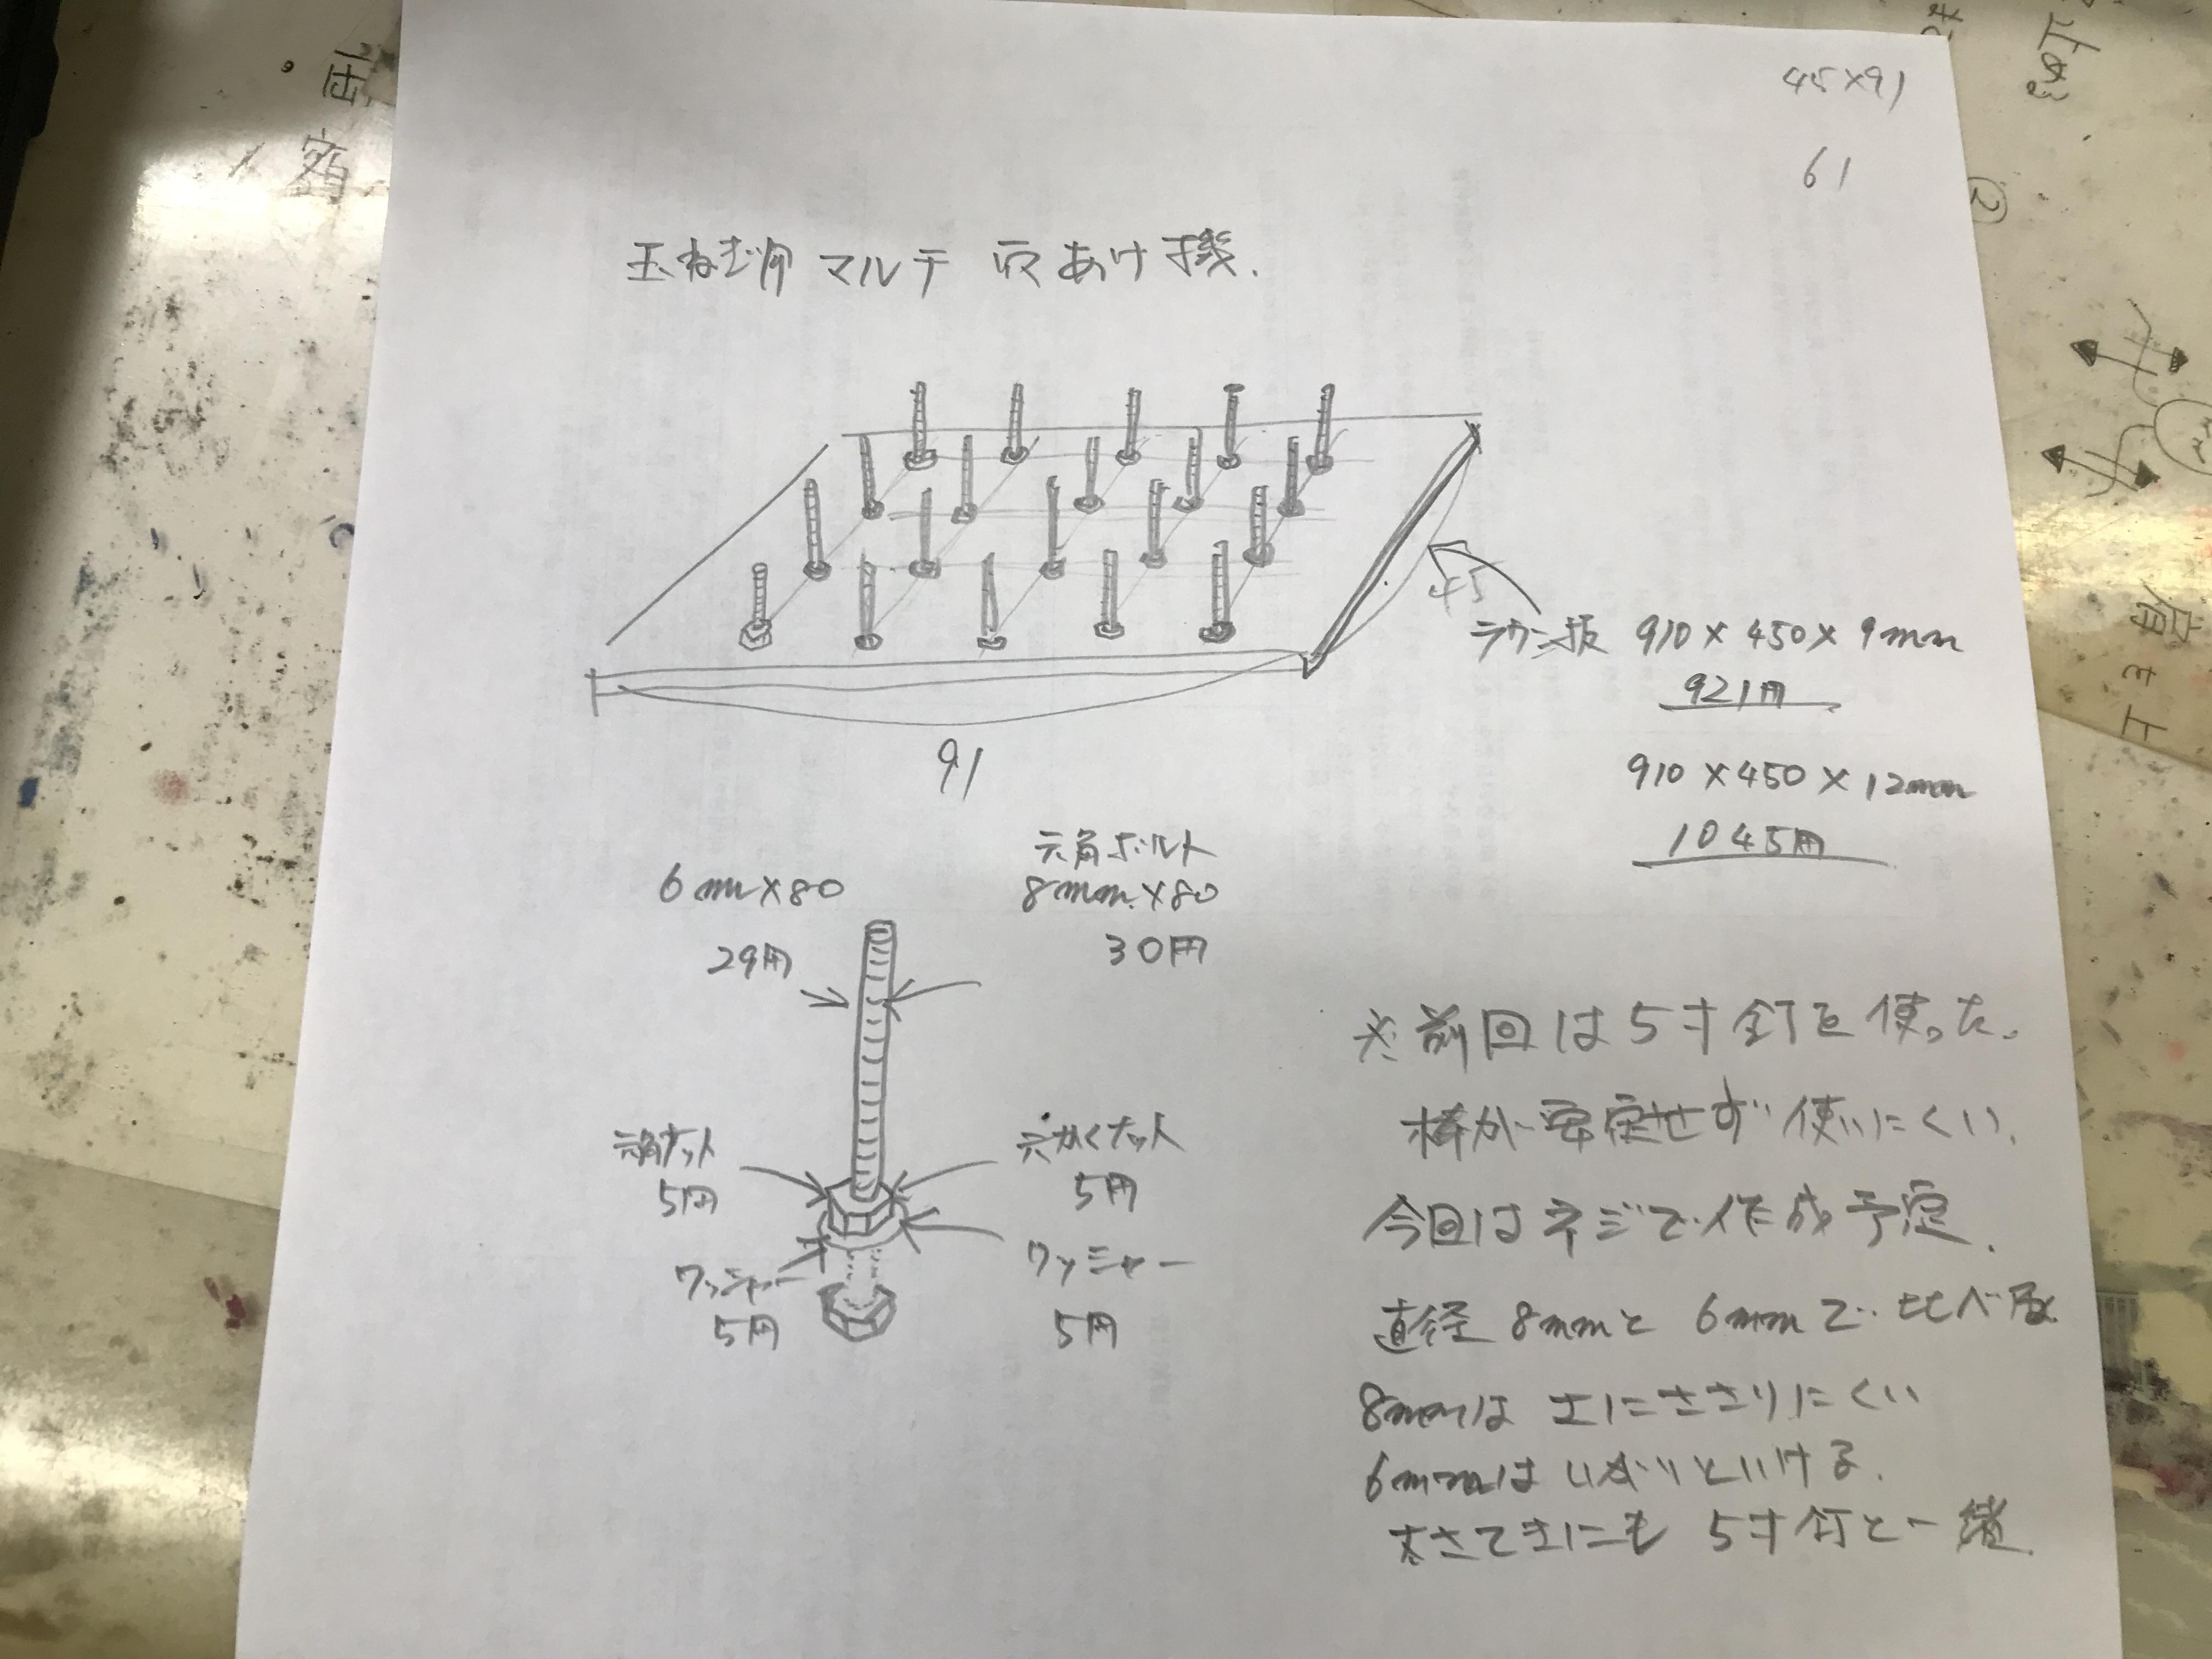 45×91
61
玉ねぎ用 マルチ 穴あけ機.
45
ラワン板 910×450×9mm
921円
910×450×12mm
1045円
91
六角ボルト
6mm×80
8mm×80
29円
30円
六角ナット
5円
六かくナット
5円
ワッシャー
5円
ワッシャー
5円
※前回は5寸釘を使った。
棒が安定せず使いにくい.
今回はネジで作成予定.
直径 8mmと 6mmで比べ
8mmは 土にささりにくい
6mmは いがいといける.
太さてきにも 5寸釘と一緒.
②